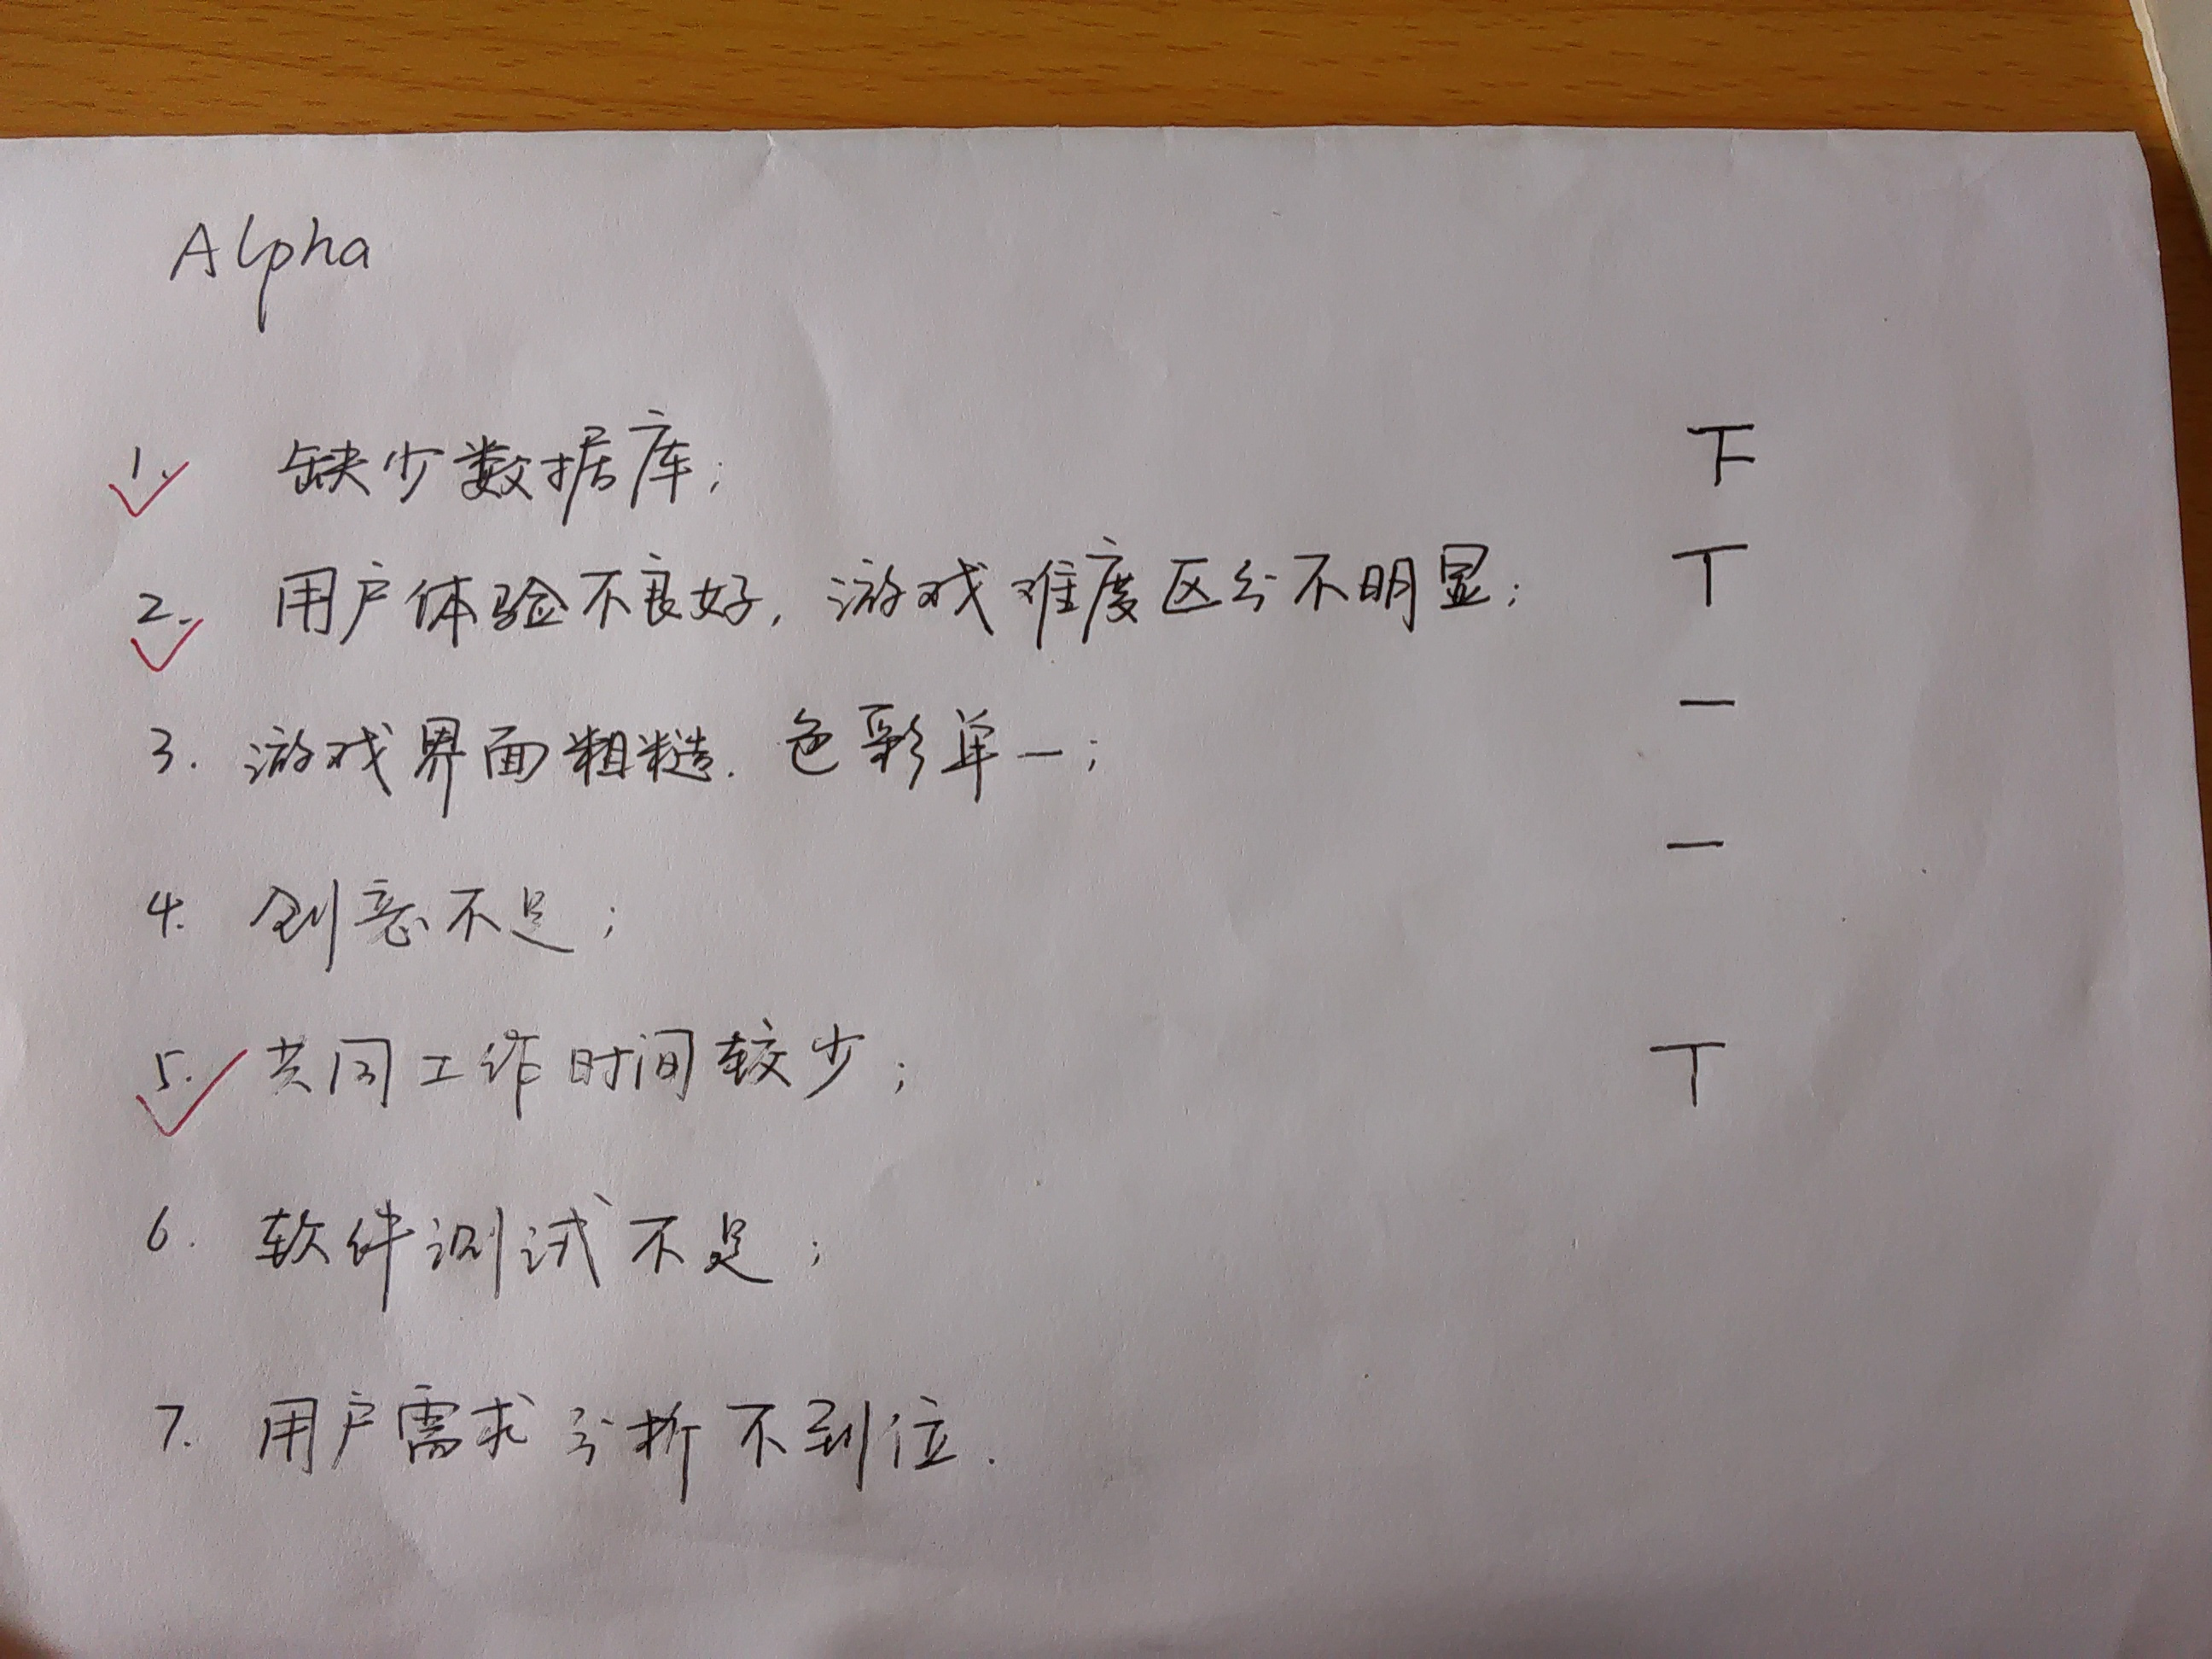 Alpha
1. 缺少数据库; 下
2. 用户体验不良好, 游戏难度区分不明显; 丅
3. 游戏界面粗糙. 色彩单一; 一
4. 创意不足; 一
5. 共同工作时间较少; 丅
6. 软件测试不足;
7. 用户需求分析不到位.